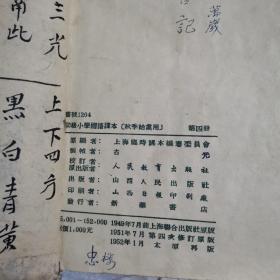 三光 上下四方
南此 黑白青黄
萬歲
记
書號1204
初級小學國語課本（秋季始業用） 第四冊
原編者：上海臨時課本編審委員會
校訂者：
原出版者：人民教育出版社
出版者：山西人民出版社
印刷者：山西日報印刷廠
發行者：新華書店
001—152,000 1949年7月前上海聯合出版社原版
1951年7月第四次修訂原版
價1,000元 1952年1月太原再版
忠